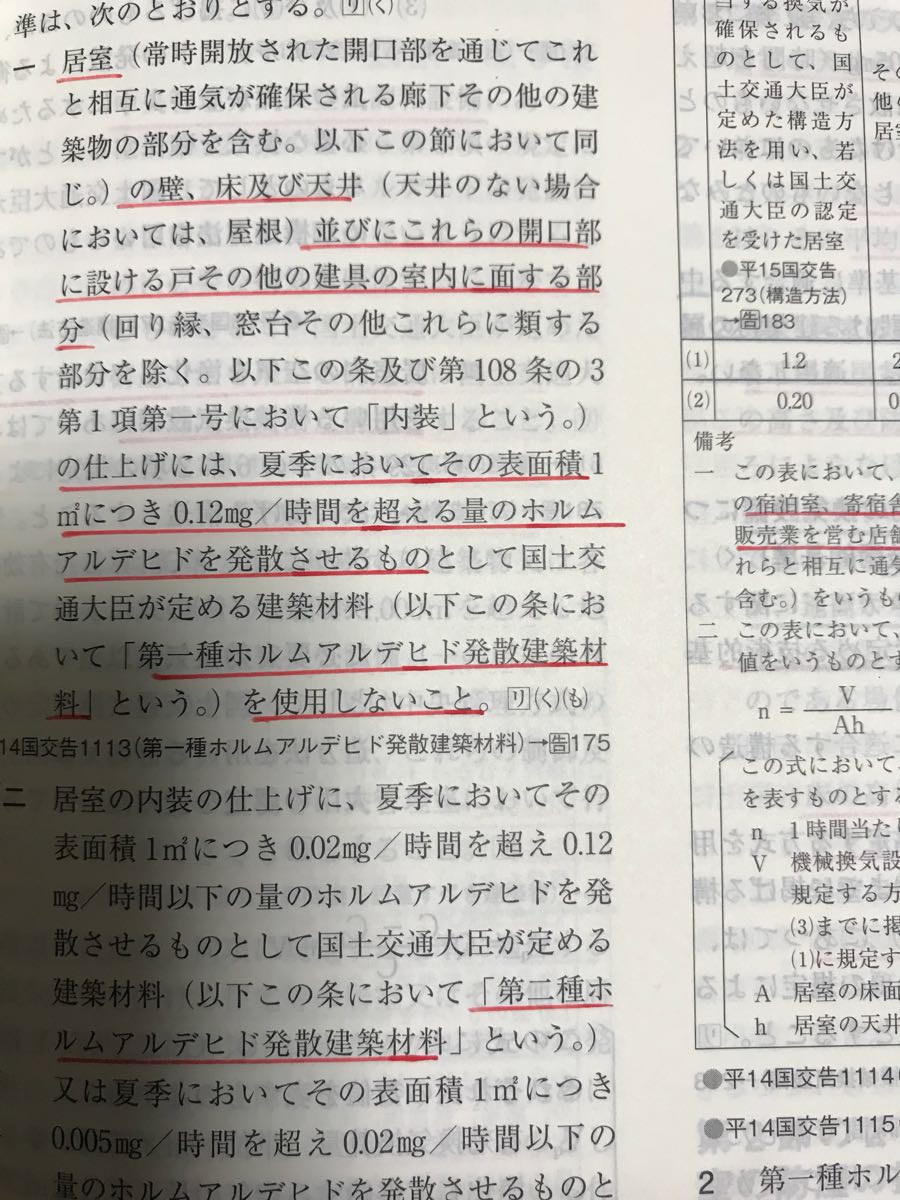 準は、次のとおりとする。リ(く)
一 居室(常時開放された開口部を通じてこれ
と相互に通気が確保される廊下その他の建
築物の部分を含む。以下この節において同
じ。)の壁、床及び天井(天井のない場合
においては、屋根)並びにこれらの開口部
に設ける戸その他の建具の室内に面する部
分(回り縁、窓台その他これらに類する
部分を除く。以下この条及び第108条の3
第1項第一号において「内装」という。)
の仕上げには、夏季においてその表面積1
㎡につき0.12mg/時間を超える量のホルム
アルデヒドを発散させるものとして国土交
通大臣が定める建築材料(以下この条にお
いて「第一種ホルムアルデヒド発散建築材
料」という。)を使用しないこと。リ(く)(も)
14国交告1113(第一種ホルムアルデヒド発散建築材料)→告175
二 居室の内装の仕上げに、夏季においてその
表面積1㎡につき0.02mg/時間を超え0.12
mg/時間以下の量のホルムアルデヒドを発
散させるものとして国土交通大臣が定める
建築材料(以下この条において「第二種ホ
ルムアルデヒド発散建築材料」という。)
又は夏季においてその表面積1㎡につき
0.005mg/時間を超え0.02mg/時間以下の
量のホルムアルデヒドを発散させるものと
当する換気が
確保されるも
のとして、国
土交通大臣が
定めた構造方
法を用い、若
しくは国土交
通大臣の認定
を受けた居室
●平15国交告
273(構造方法)
→告183
その
他の
居室
(1) 1.2
(2) 0.20
備考
一 この表において、
の宿泊室、寄宿舎
販売業を営む店舗
れらと相互に通気
含む。)をいうもの
二 この表において、
値をいうものとす
n = V
Ah
この式において、
を表すものとする
n 1時間当たり
V 機械換気設
規定する方
(3)までに掲
(1)に規定す
A 居室の床面
h 居室の天井
●平14国交告1114(
●平14国交告1115(
2 第一種ホル